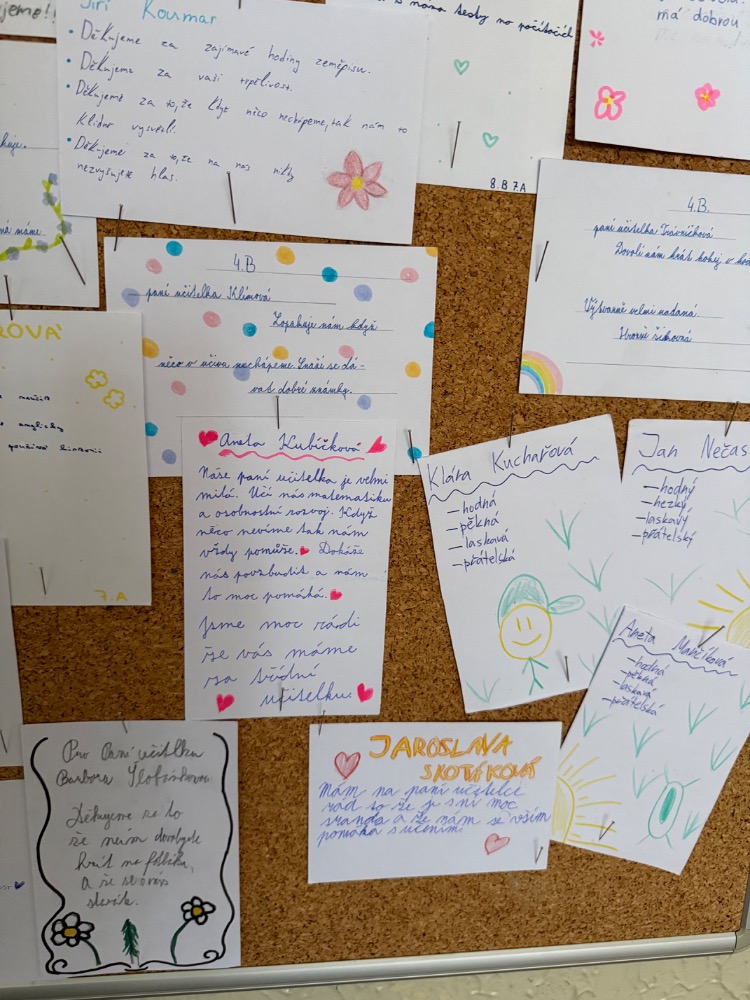 Jiří Koumar
• Děkujeme za zajímavé hodiny zeměpisu.
• Děkujeme za vaši trpělivost.
• Děkujeme za to, že když něco nechápeme, tak nám to
klidně vysvětlí.
• Děkujeme za to, že na nás nikdy
nezvyšujete hlas.
na počítačích
8.B 7.A
má dobrou
4.B.
paní učitelka Trávníčková
Dovolí nám hrát hokej v
Výtvarně velmi nadaná.
Hrozně šikovná
máme.
4.B
paní učitelka Klímová
Zopakuje nám když
něco v učivu nechápeme. Snaží se dá-
vat dobré známky.
ROVÁ
anglicky
používá
7.A
Aneta Kubíčková
Naše paní učitelka je velmi
milá. Učí nás matematiku
a osobnostní rozvoj. Když
něco nevíme tak nám
vždy pomůže. Dokáže
nás povzbudit a nám
to moc pomáhá.
Jsme moc rádi
že vás máme
za třídní
učitelku
Klára Kuchařová
—hodná
—pěkná
—laskavá
—přátelská
Jan Nečas
—hodný
—hezký
—laskavý
—přátelský
Aneta
—hodná
—pěkná
—laskavá
—přátelská
Pro Paní učitlka
Barbora
Děkujeme za to
že nám dovolujete
hrát na
a že se o nás
staráte.
JAROSLAVA
SKOTÁKOVÁ
Mám na paní učitelce
rád to že je s ní moc
sranda a že nám se vším
pomáhá s učením.